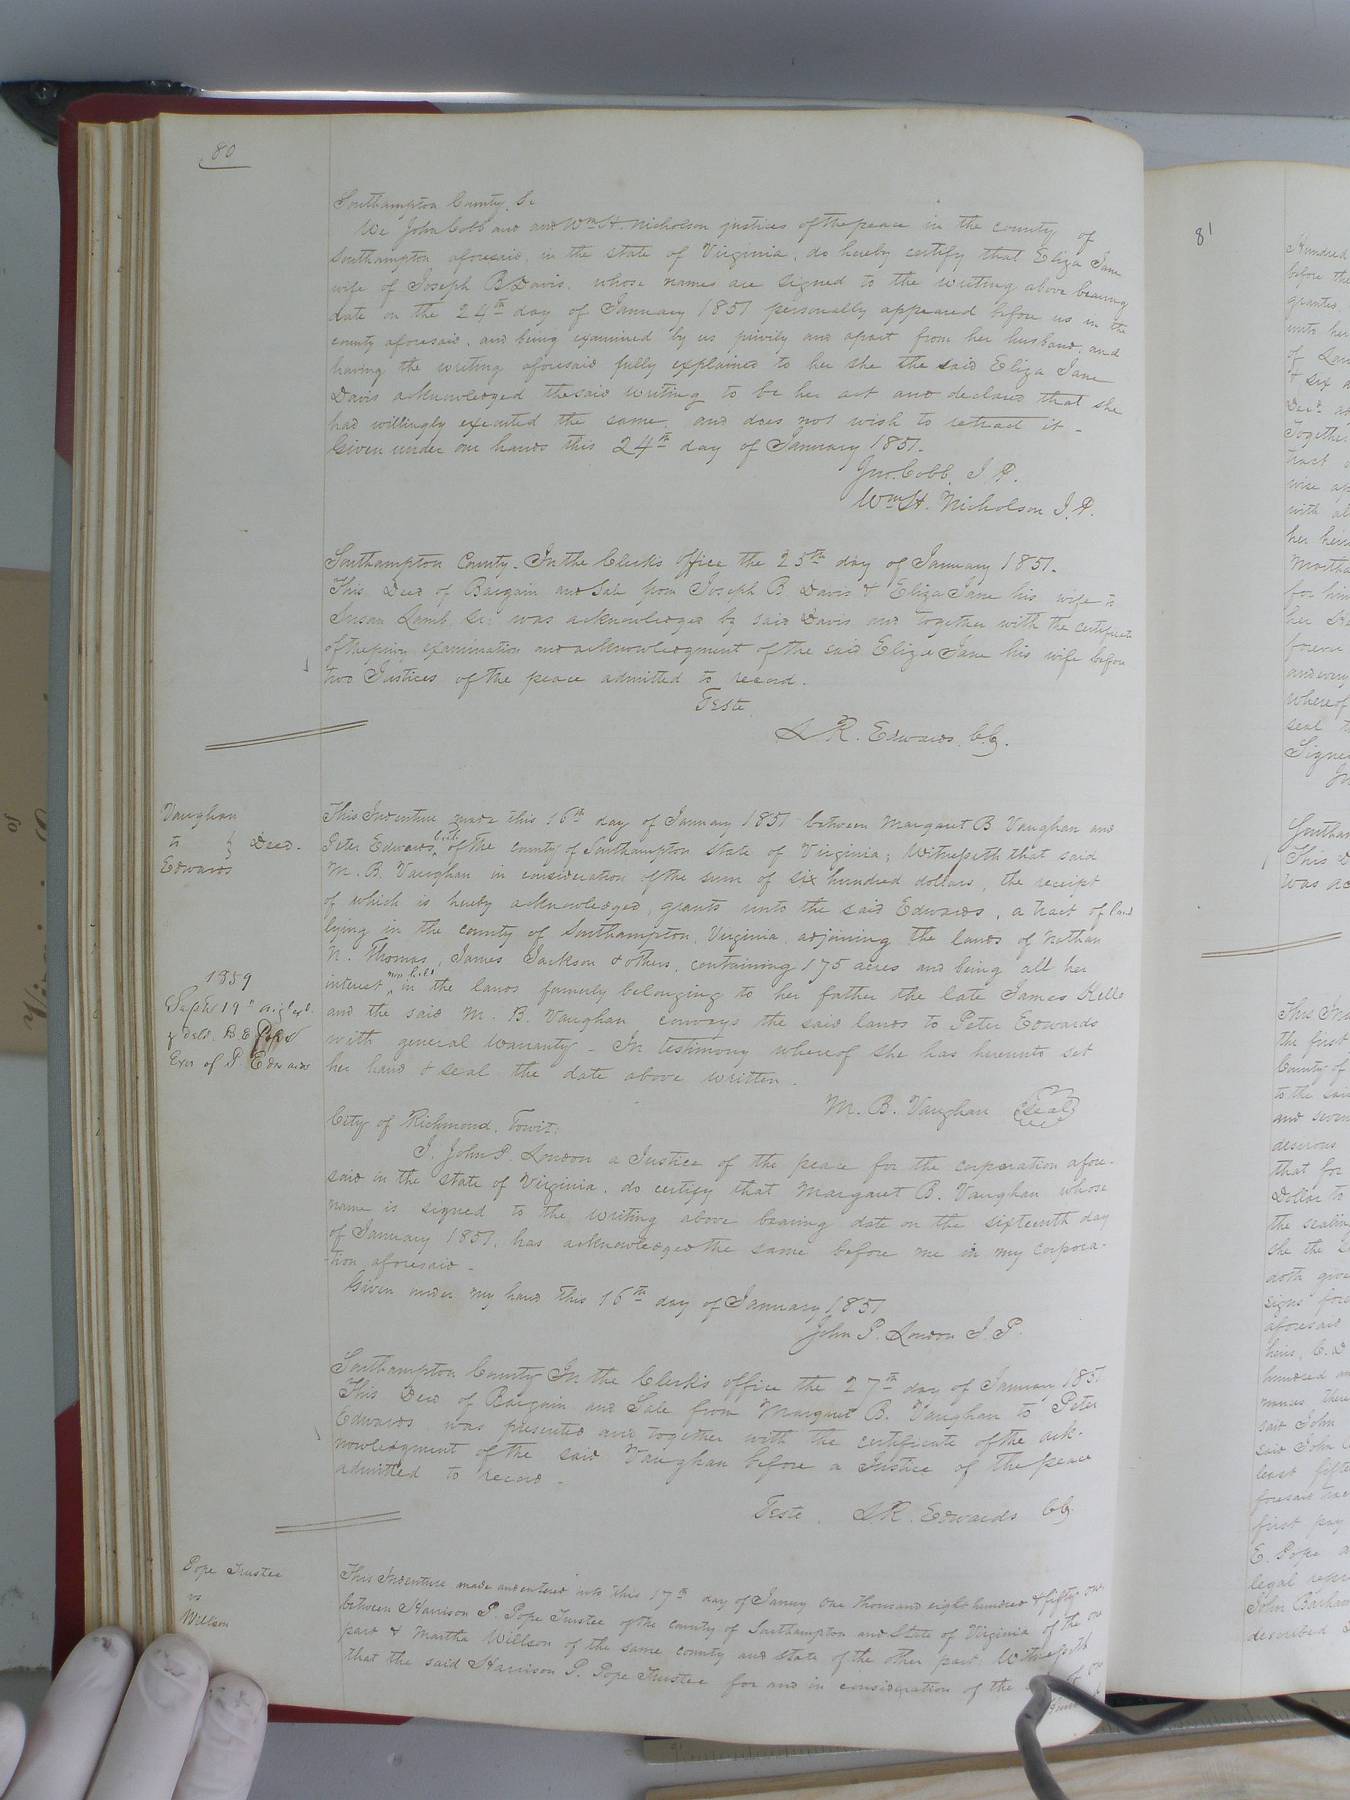 80
Southampton County, Sc
We John Cobb and and Wm H. Nicholson justices of the peace in the county of
Southampton aforesaid, in the state of Virginia, do hereby certify that Eliza Jane
wife of Joseph B. Davis, whose names are signed to the writing above bearing
date on the 24th day of January 1851 personally appeared before us in the
county aforesaid, and being examined by us privily and apart from her husband, and
having the writing aforesaid fully explained to her she the said Eliza Jane
Davis acknowledged the said writing to be her act and declared that she
had willingly executed the same, and does not wish to retract it -
Given under our hands this 24th day of January 1851.
Jno. Cobb, J. P.
Wm H. Nicholson J. P.
Southampton County. In the Clerks Office the 25th day of January 1851.
This Deed of Bargain and Sale from Joseph B. Davis & Eliza Jane his wife to
Susan Lamb, was acknowledged by said Davis and together with the certificate
of the privy examination and acknowledgment of the said Eliza Jane his wife before
two Justices of the peace admitted to record.
Teste
L. R. Edwards, C.C.
Vaughan
to } Deed.
Edwards
This Indenture made this 16th day of January 1851 between Margaret B Vaughan and
Peter Edwards, of the county of Southampton state of Virginia; Witnesseth that said
M. B. Vaughan in consideration of the sum of six hundred dollars, the receipt
of which is hereby acknowledged, grants unto the said Edwards, a tract of land
lying in the county of Southampton, Virginia, adjoining the lands of Nathan
N. Thomas, James Jackson & others, containing 175 acres and being all her
interest in the lands formerly belonging to her father the late James Kello
and the said M. B. Vaughan conveys the said lands to Peter Edwards
with general warranty - In testimony whereof she has hereunto set
her hand & seal the date above written.
1859
Septr 19th
deld. B E Pope
Exor of P. Edwards
M. B. Vaughan (Seal)
City of Richmond, Towit:
I, John P. London a Justice of the peace for the corporation afore-
said in the state of Virginia, do certify that Margaret B. Vaughan whose
name is signed to the writing above bearing date on the sixteenth day
of January 1851, has acknowledged the same before me in my corpora-
tion aforesaid -
Given under my hand this 16th day of January 1851
John P. London J. P.
Southampton County In the Clerk's office the 27th day of January 1851
This Deed of Bargain and Sale from Margaret B. Vaughan to Peter
Edwards was presented and together with the certificate of the ack-
nowledgment of the said Vaughan before a Justice of the peace
admitted to record -
Teste. L. R. Edwards CC
Pope Trustee
vs
Willson
This Indenture made and entered into this 17th day of Janury One thousand eight hundred & fifty one
between Harrison P. Pope Trustee of the county of Southampton and State of Virginia of the one
part & Martha Willson of the same county and state of the other part; Witnesseth
that the said Harrison P. Pope Trustee for and in consideration of the
81
Hundred
before the
grantes
unto her
of
& six
Decd
Together
tract
wise
with
her heirs
Martha
for him
her
forever
and every
whereof
seal
Signed
This
was
This
the first
County of
to the said
and seven
desirous
that for
Dollar to
the sealing
she the
doth
signs
aforesaid
heirs,
hundred
said John
said John
least
first pay
E. Pope
legal
John Barham
described